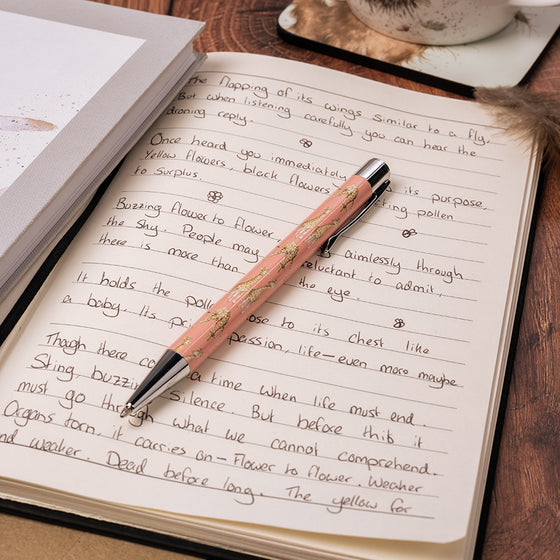 The flapping of its wings similar to a fly,
But when listening carefully you can hear the
droning reply.
Once heard you immediately its purpose,
Yellow flowers, black flowers, ting pollen
to surplus.
Buzzing flower to flower, aimlessly through
the sky. People may reluctant to admit,
there is more than the eye.
It holds the pollen ose to its chest like
a baby. Its pri passion, life—even more maybe.
Though there co a time when life must end.
Sting, buzzing Silence. But before this it
must go through what we cannot comprehend.
Organs torn, it carries on — Flower to flower. Weaker
and weaker. Dead before long. The yellow for